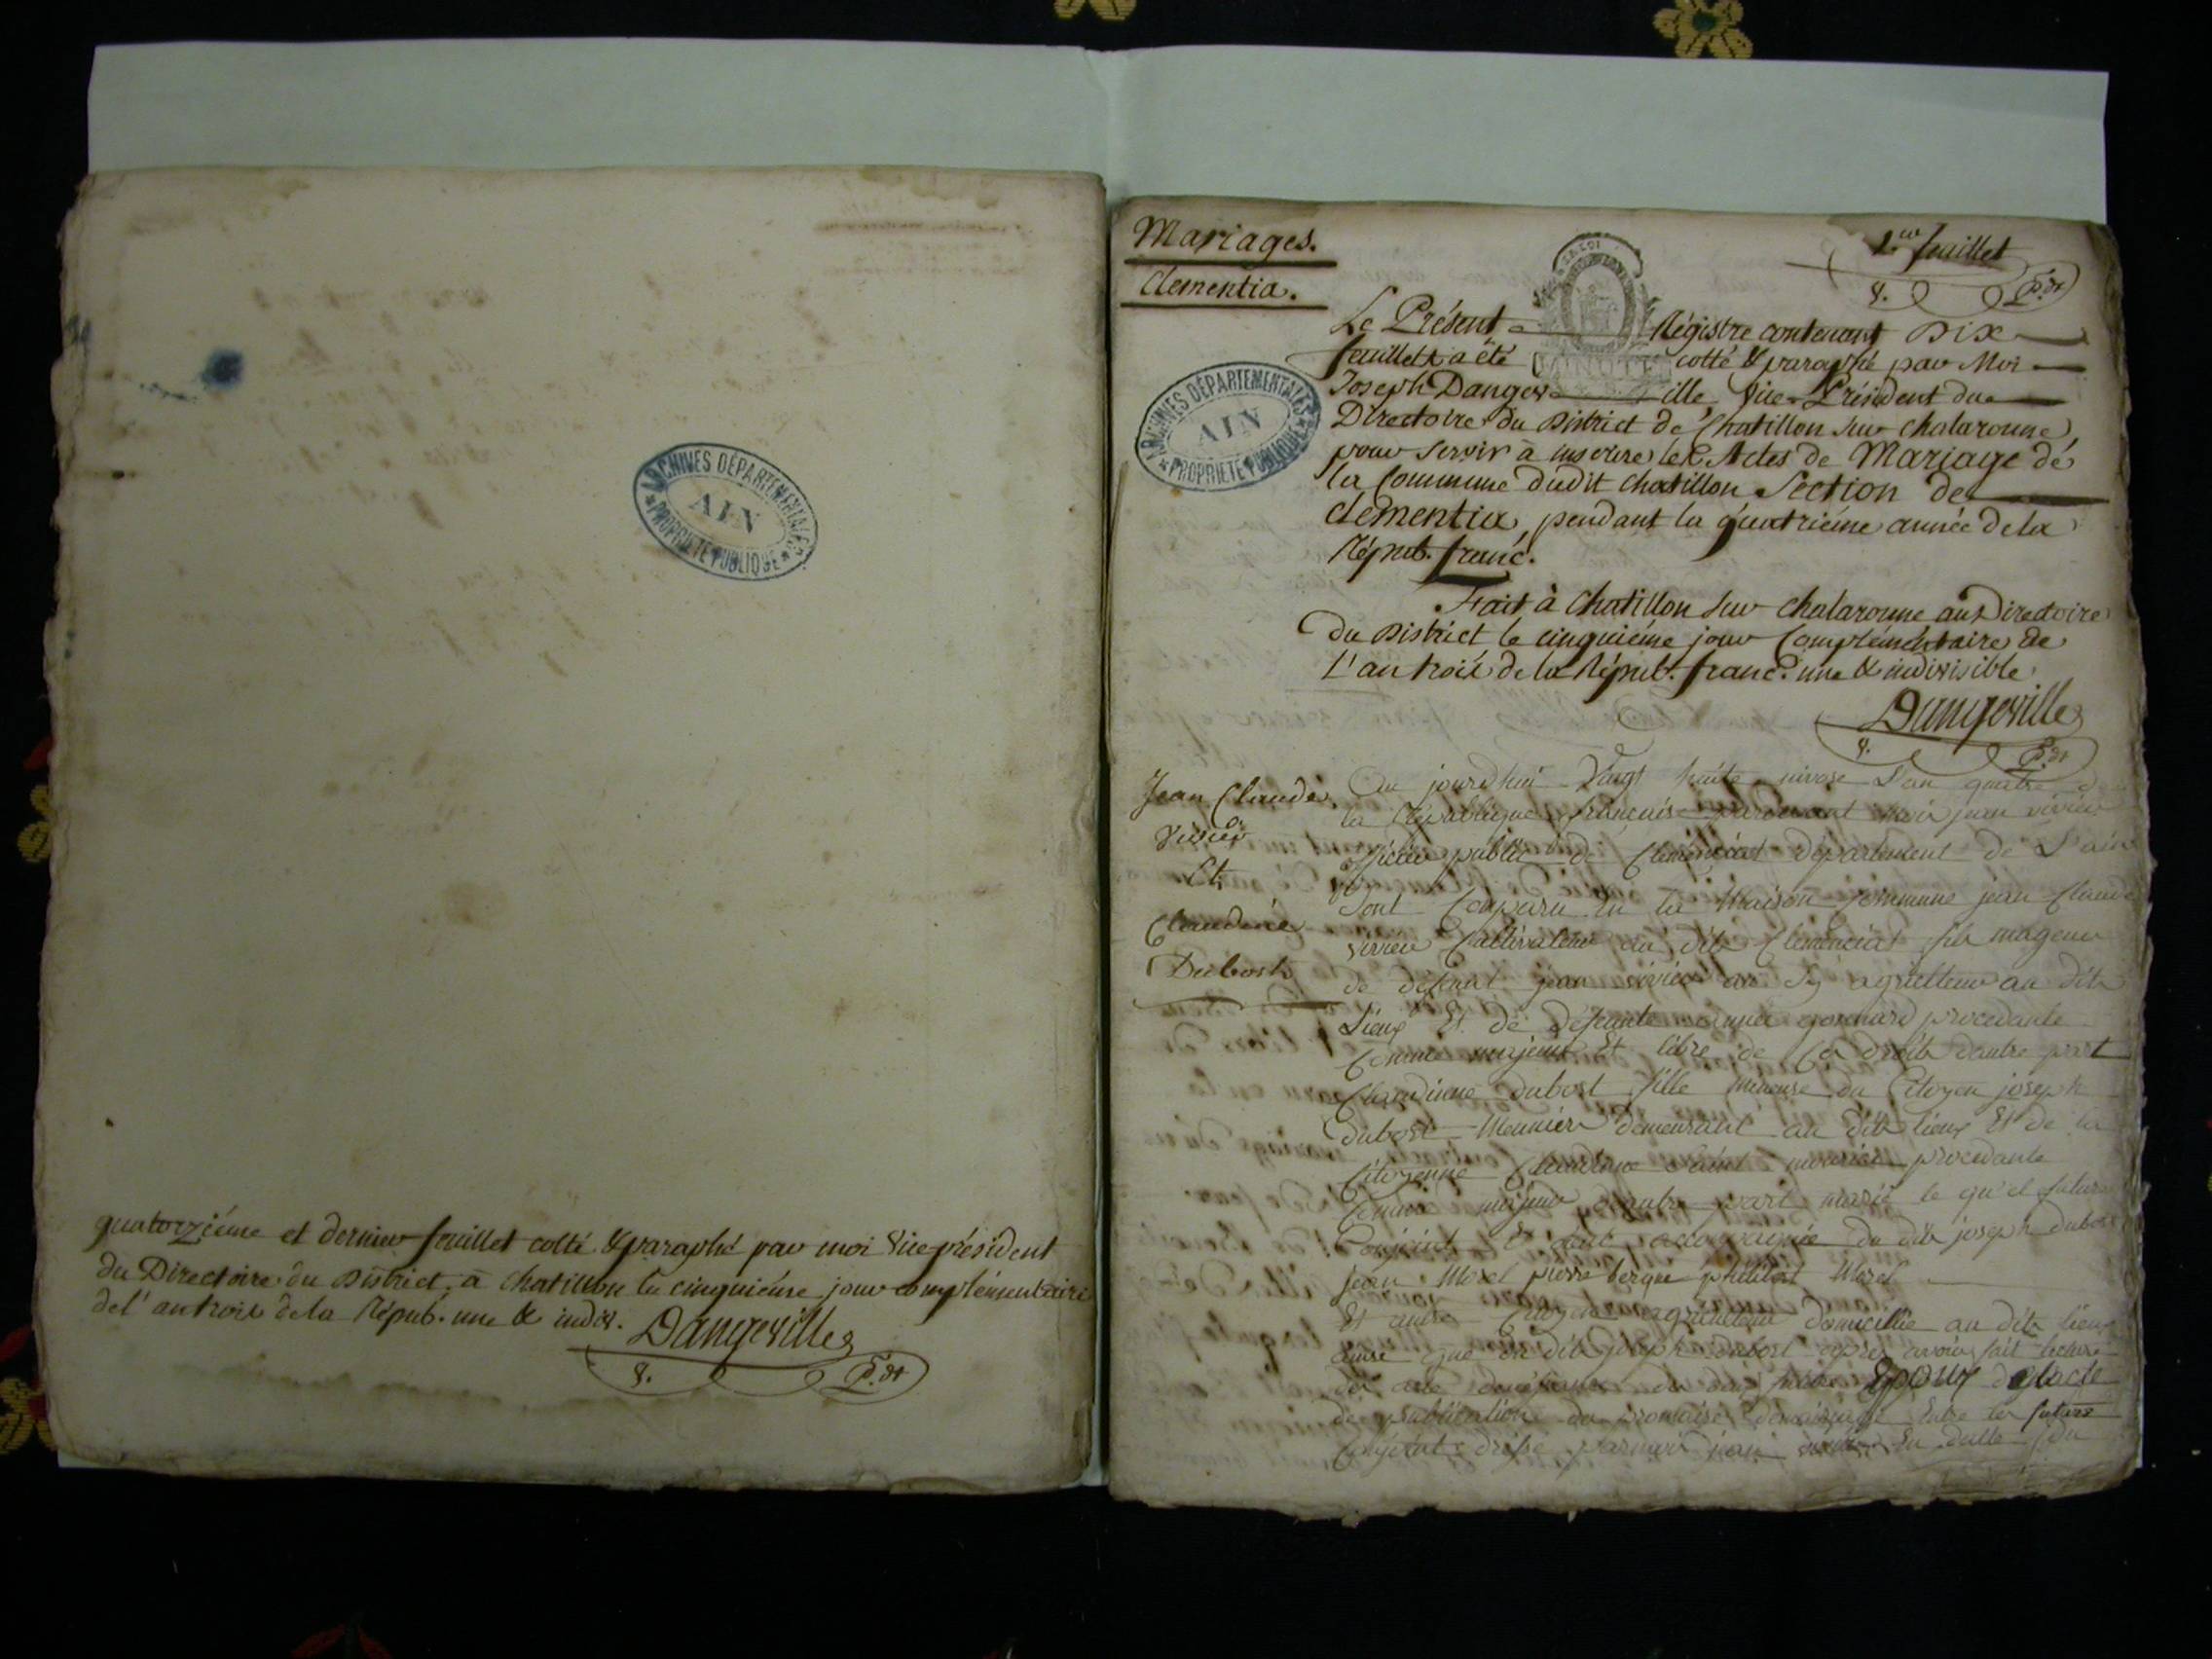 ARCHIVES DÉPARTEMENTALES
AIN
PROPRIÉTÉ PUBLIQUE
quatorziéme et dernier feuillet cotté & paraphé par moi Vice président
du Directoire du District, à Chatillon le cinquiéme jour complémentaire
de l'an trois de la Répub. une & indiv. Dangeville
P.dt
Mariages.
Clementia.
1.er feuillet
P.dt
Le Présent Régistre contenant Dix
feuillets a été cotté & paraphé par Moi
MINUTE
Joseph Dangeville, Vice-Président du
ARCHIVES DÉPARTEMENTALES
AIN
PROPRIÉTÉ PUBLIQUE
Directoire du District de Chatillon sur Chalaronne,
pour servir à inscrire les Actes de Mariage de
la Commune dudit Chatillon Section de
Clementia, pendant la quatriéme année de la
Répub. franç.
Fait à Chatillon sur Chalaronne au Directoire
du District le cinquiéme jour Complémentaire de
L'an trois de la Répub. franç. une & indivisible
Dangeville
P.dt
Jean Claude
Et
Claudine
Dubost
Au jourdhui Vingt huite nivose L'an quatre de
la République français pardevant moi jean
officier public de Clemenciat département de L'ain
Sont Comparu en la Maison Commune jean Claude
Cultivateur au dit Clemenciat fils mageur
de défunt jean agriculteur au dit
Lieux Et de défunte procedante
Comme majeur Et libre de Ces droits dautre part
Claudinne dubost fille mineuse du Citoyen joseph
dubost Meunier demeurant au dit lieux Et de la
Citoyenne Claudinne procedante
Comme majeur dautre part le qu'el futurs
Conjoint accompagnée du dit joseph dubost
jean Morel pierre philibert Morel
Et agriculteur domicillié au dit lieux
que du dit joseph dubost apres avoir fait lecture
Epoux de lacte
de publication du promaise demariage Entre les futurs
Conjoint dressé parmoi jean En datte du